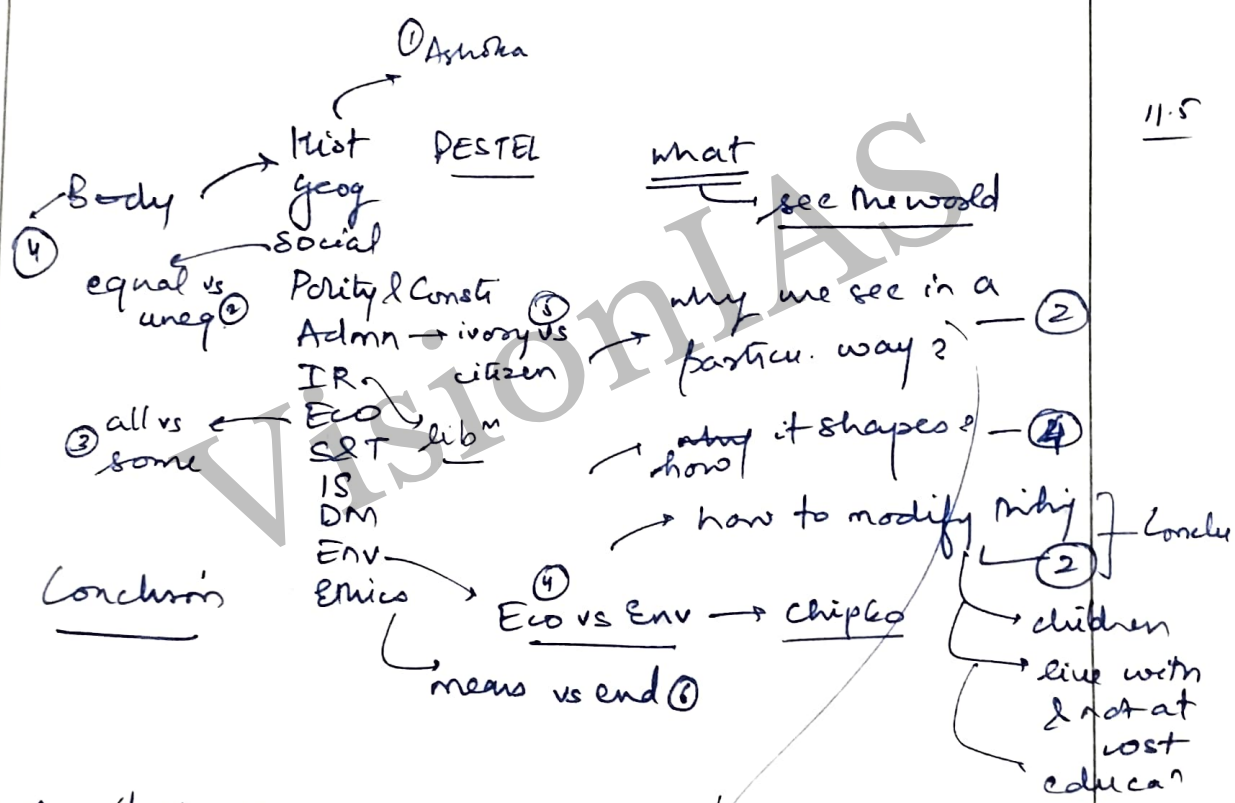 ① Ashoka
11.5
Hist PESTEL what
Body geog see the world
④ social
equal vs uneq ②
Polity & Consti
why we see in a particu. way? — ②
Admn → ivory vs citizen ⑤
IR
lib^m
③ all vs some
Eco
S&T
how it shapes? — ④
IS
DM
how to modify
Env
②
Conclusion
Ethics
④
Eco vs Env → chipko
children
means vs end ⑥
live with
& not at
cost
educaⁿ
VisionIAS